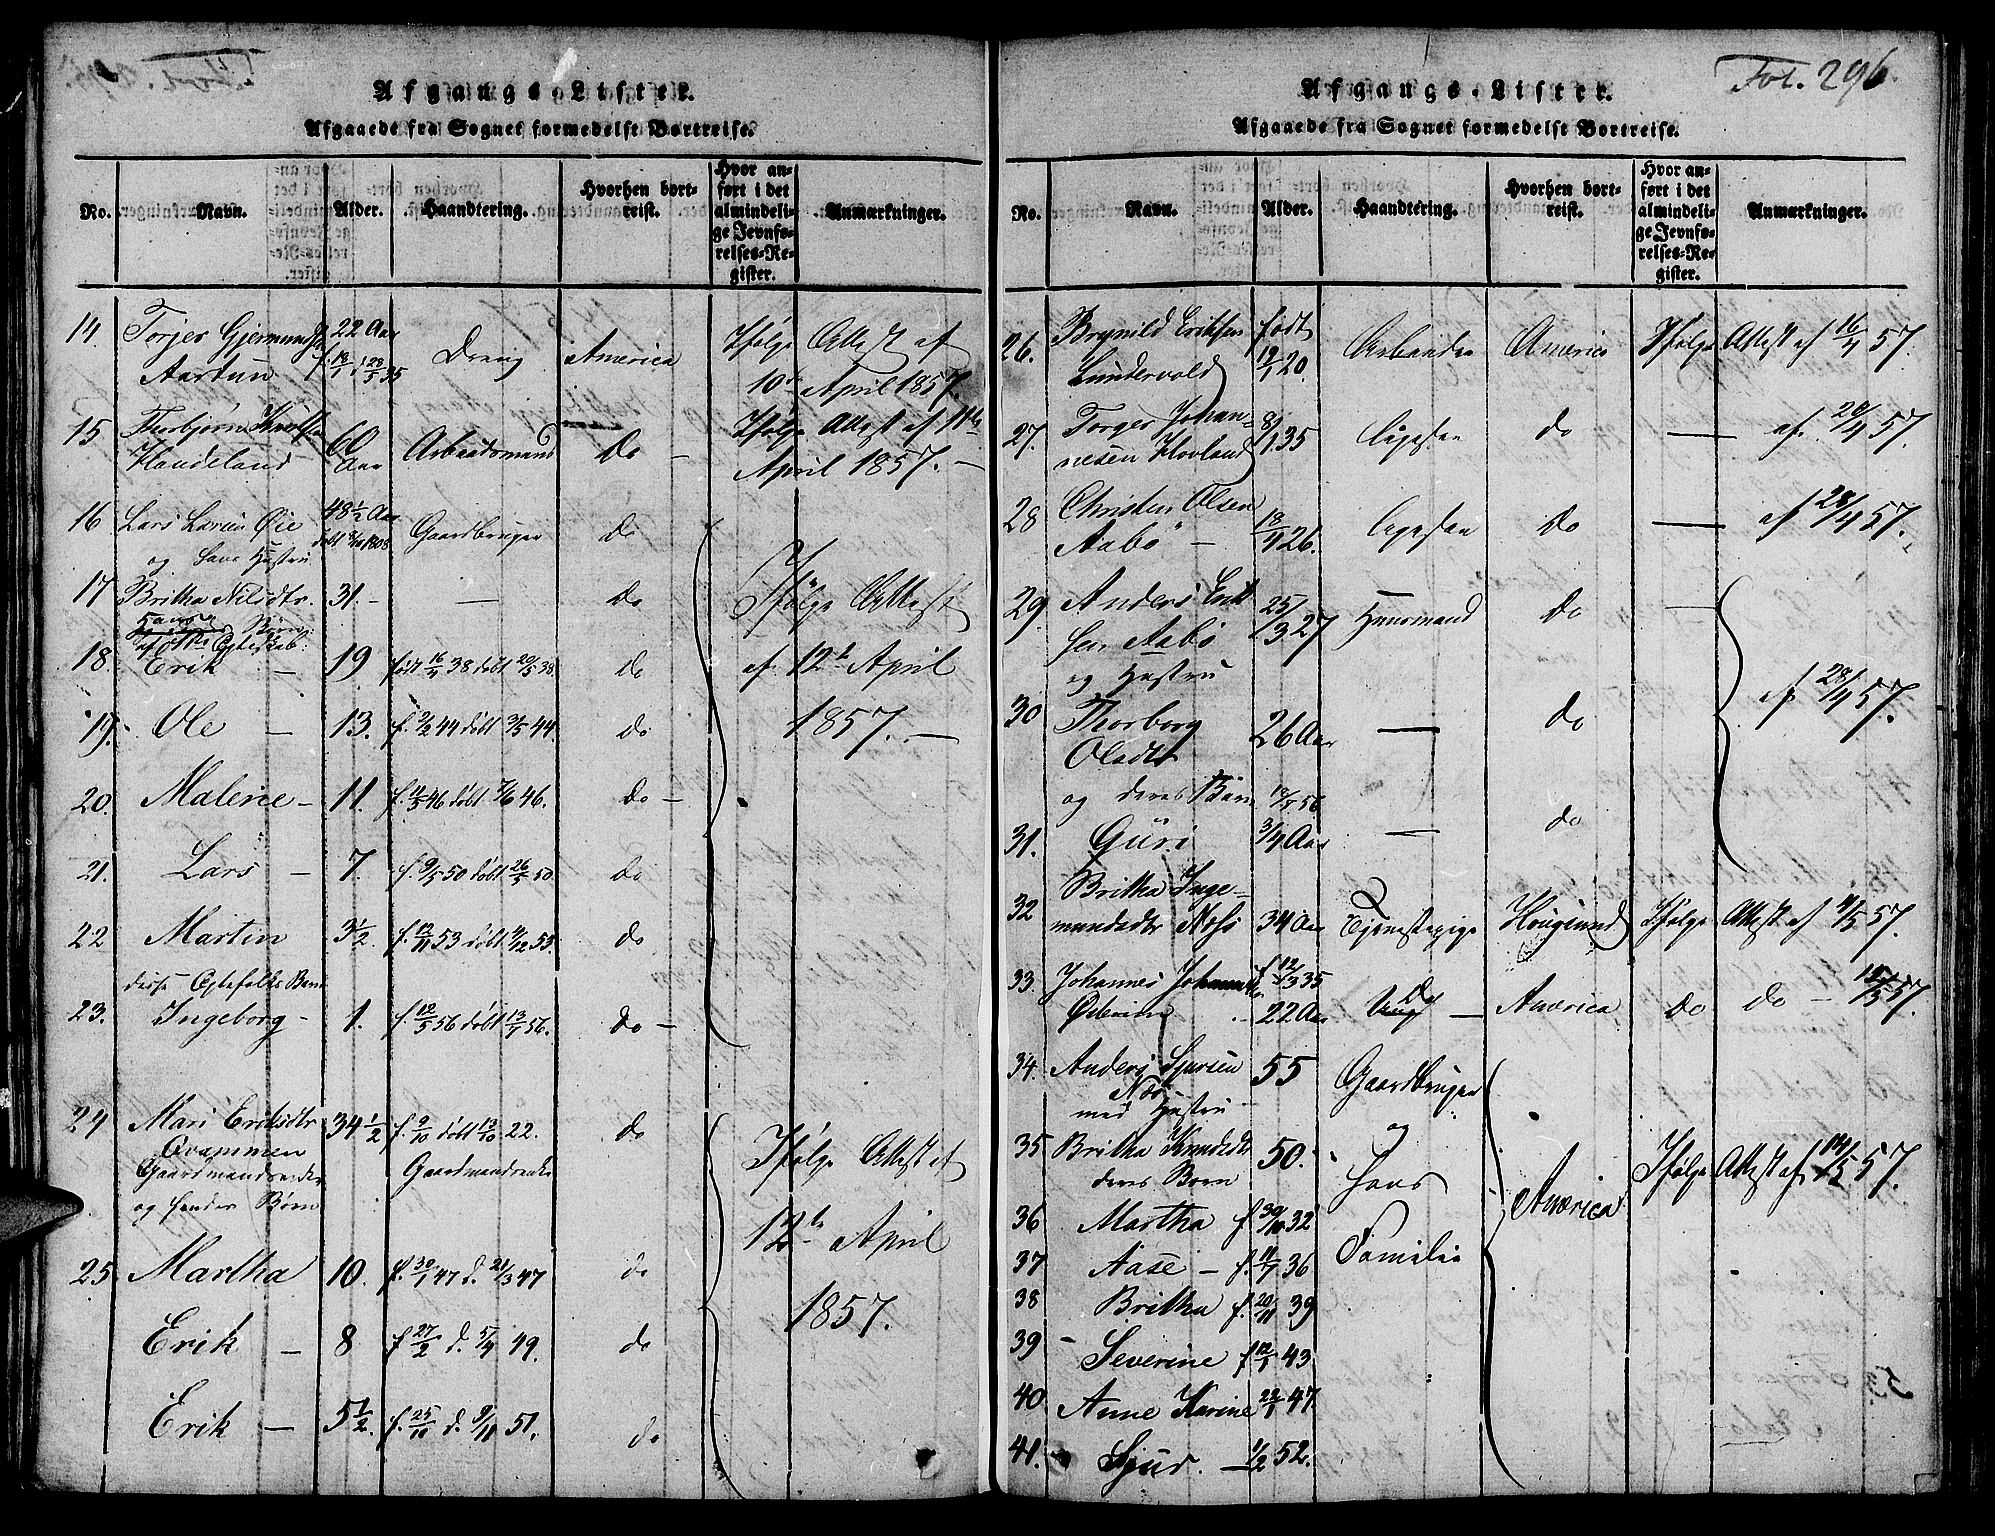 Afgangs-Lister.
Afgaaede fra Sognet formedelst Bortreise.
No. Navn. Alder. Haandtering. Hvorhen bortreist. Hvor anført i det almindelige Jevnførelses-Register. Anmærkninger.
14 Torjer Gjermundsen 22 Aar
Aartun Dreng America Ifølge Attest af
10de April 1857.
15 Thorbjørn
60 Aar Arbeidsmand do — Ifølge Attest af 11te
April 1857. —
16 Lars Larsen Øie 48 1/2 Aar
og hans Hustru født 1808 Gaardbruger do
17 Britha Nilsdtr. 31. — — do Ifølge Attest
Hans Børn
af Ægteskab:
18. Erik — 19 født 16/4 38 døbt 20/5 38. do af 12te April
19. Ole — 13. f. 2/2 44 døbt 3/5 44. do 1857. —
20. Malene — 11. f. 4/5 46 døbt 7/6 46. do —
21. Lars — 7. f. 9/5 50 døbt 26/5 50. do
22 Martin 3 1/2. f. 12/11 53 døbt 4/12 53. do
disse Egtefolks Barn
23. Ingeborg — 1. f. 12/5 56 døbt 13/7 56. do —
24 Mari Eriksdtr 34 1/2 f. 9/10 døbt 13/10 22. do
Qvammen Gaardmandsenke Ifølge Attest af
Gaardmandsenke
og hendes Børn 12te April
25. Martha 10. f. 30/1 47 d. 21/3 47 do
1857.
Erik — 8 f. 27/2 d. 5/4 49. do
Erik — 5 1/2. f. 25/10 d. 9/11 51. do
Fol. 296.
Afgangs-Lister.
Afgaaede fra Sognet formedelst Bortreise.
No. Navn. Alder. Haandtering. Hvorhen bortreist. Hvor anført i det almindelige Jevnførelses-Register. Anmærkninger.
26. Brynild Eriksen født
Lundervold 19/1 20. Arbeider America Ifølge Attest af 16/4 57.
27. Torger Johan-
nesen Hovland 8/1 35 ligesaa do — af 20/4 57.
28 Christen Olsen
Aabø — 18/4 26. ligesaa do — af 28/4 57.
29. Anders Erik
sen Aabø 25/3 27 Huusmand do —
og Hustru
30 Thorborg 26 Aar — do af 28/4 57.
Olsdtr
og deres Barn
31. Guri 3/4 Aar — do
32 Britha Inge-
mundsdtr Næsø 34 Aar Tjenestepige Hougsund Ifølge Attest af 4/5 57.
33. Johannes Johannessen f 12/3 35
22 Aar Ung — America do do — 12/5 57.
34. Anders Sjursen 55 Gaardbruger
Næs
med Hustru og
35 Britha Knudsdtr 50. hans America Ifølge Attest af 14/5 57.
deres Børn
36 Martha f. 30/10 32 Familie
37 Aase — f. 11/7 36
38 Britha f. 20/11 39
39 — Severine f. 12/1 43
40 Anne Karine 22/1 47.
41. Sjur. — 1/2 52.